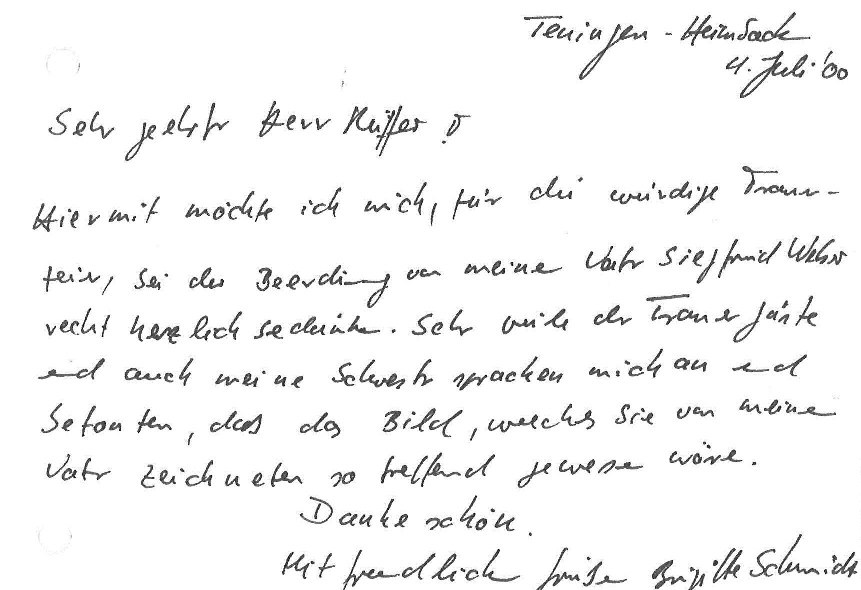 Teningen - Heimbach
4. Juli '00
Sehr geehrter Herr Küffer!
Hiermit möchte ich mich, für die würdige Trauer-
feier, bei der Beerdigung von meinem Vater Siegfried Weber
recht herzlich bedanken. Sehr viele der Trauergäste
und auch meine Schwester sprachen mich an und
betonten, daß das Bild, welches Sie von meinem
Vater zeichneten so treffend gewesen wäre.
Danke schön.
Mit freundlichen Grüßen Brigitte Schmidt